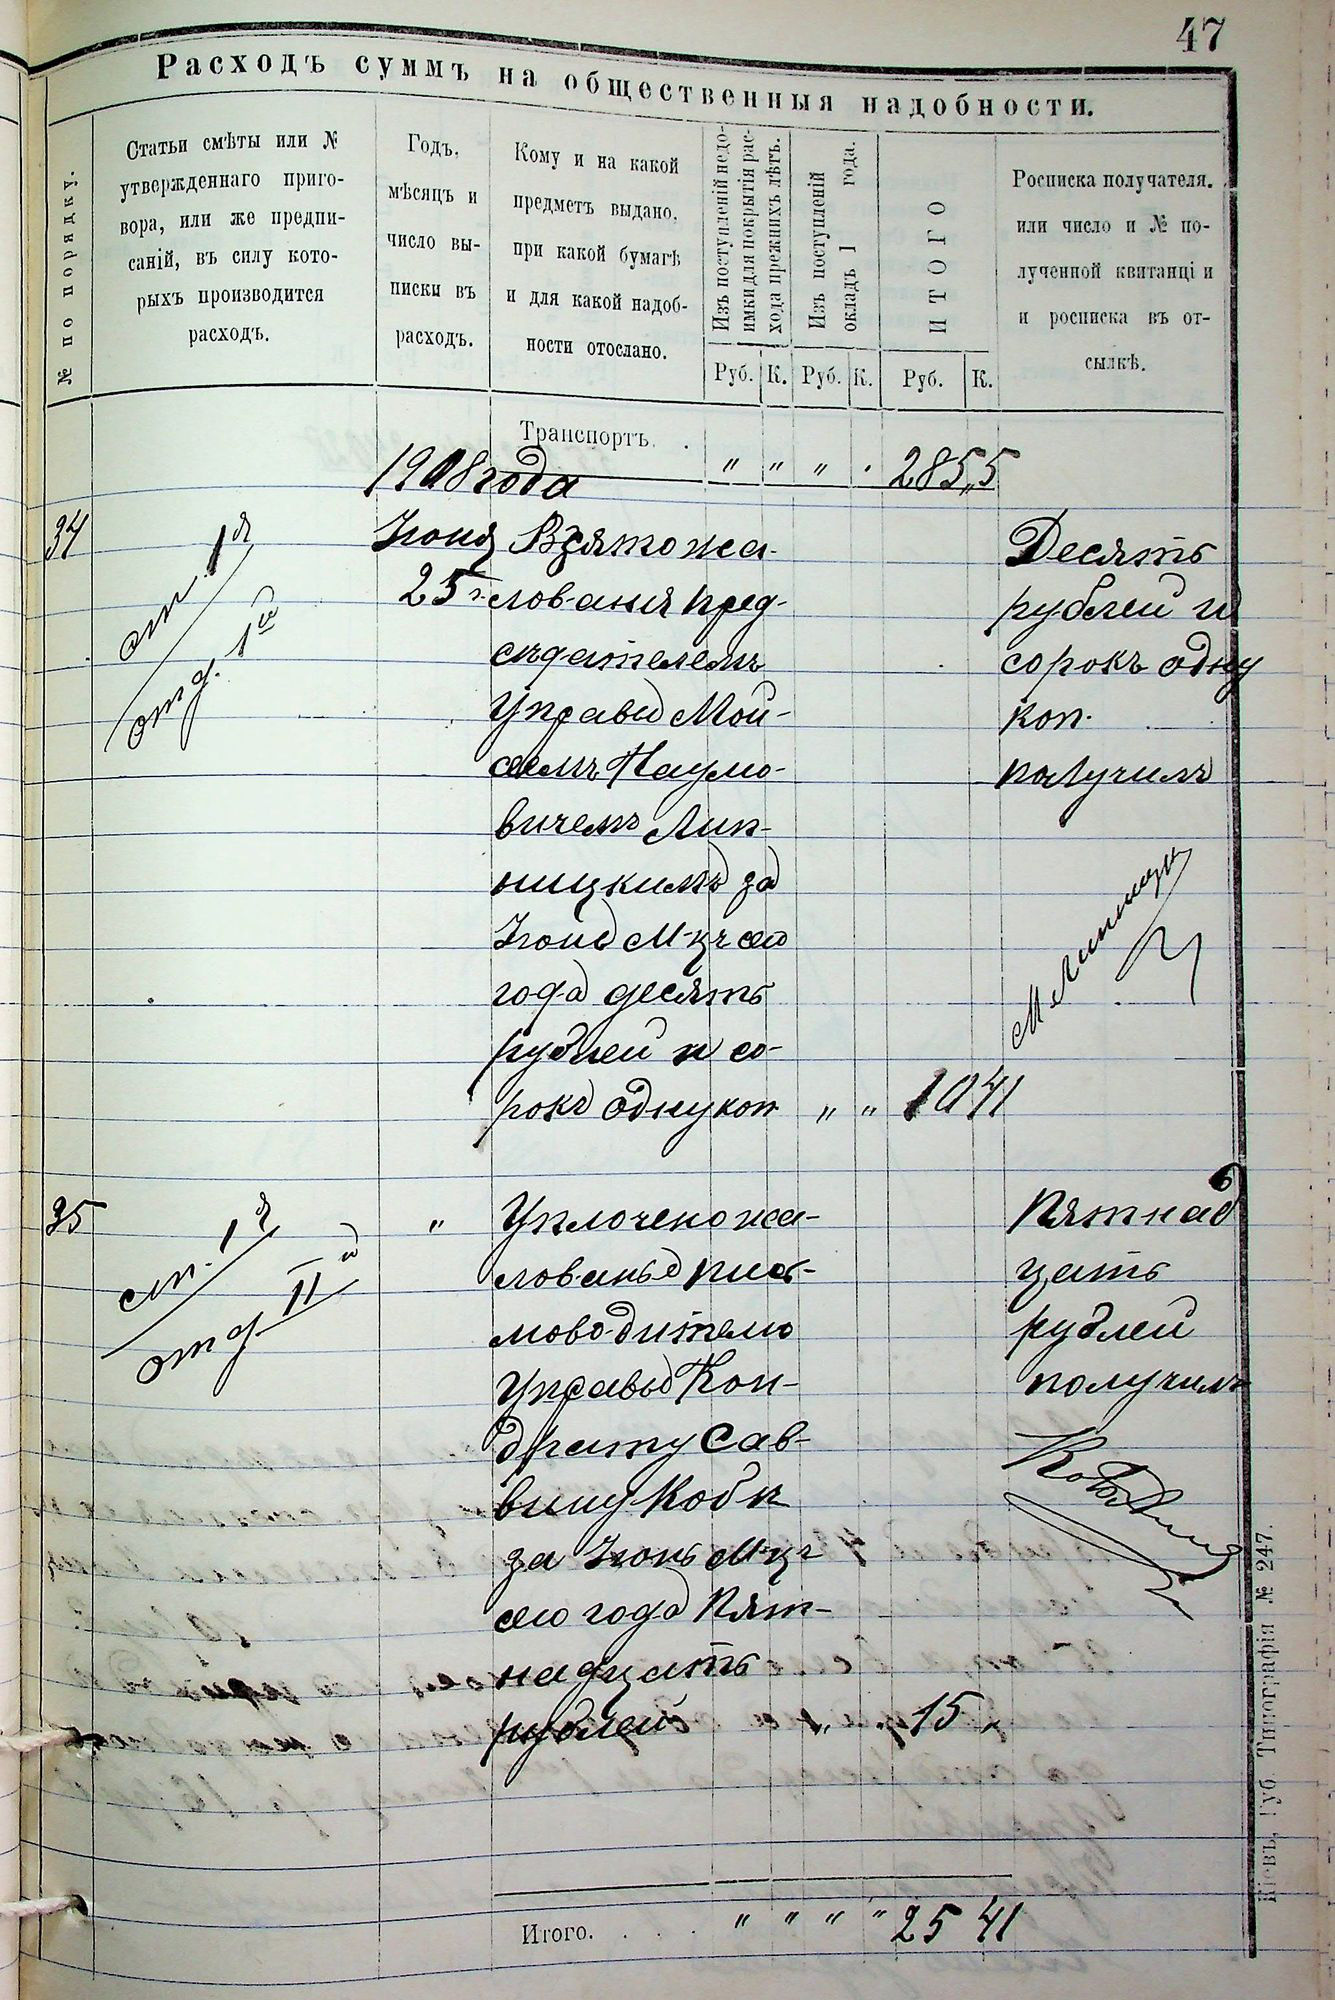 47
Расходъ суммъ на общественныя надобности.
№ по порядку.
Статьи смѣты или №
утвержденнаго приго-
вора, или же предпи-
саній, въ силу кото-
рыхъ производится
расходъ.
Годъ,
мѣсяцъ и
число вы-
писки въ
расходъ.
Кому и на какой
предметъ выдано,
при какой бумагѣ
и для какой надоб-
ности отослано.
Изъ поступленій недо-
имки для покрытія рас-
хода прежнихъ лѣтъ.
Изъ поступленій
окладъ 1 года.
ИТОГО
Росписка получателя.
или число и № по-
лученной квитанціи
и росписка въ от-
сылкѣ.
Руб. К. Руб. К. Руб. К.
Транспортъ. . " " " . 285 "5
1908 года
34
ст. 1я
отд. 1й
Іюня
25 г.
Взято жа-
лованія пред-
сѣдателемъ
Управы Мои-
сеемъ Наумо-
вичемъ Лип-
ницкимъ за
Іюнь М-цъ сего
года десять
рублей и со-
рокъ одну коп " " 10 41
Десять
рублей и
сорокъ одну
коп.
получилъ
М Липницкий
35
ст. 1я
отд. II й
"
Уплочено жа-
лованье пись-
моводителю
Управы Кон-
драту Сав-
вину Кобы
за Іюнь М-цъ
сего года Пят-
надцать
рублей " . 15 "
Пятнад
цать
рублей
получилъ
Итого. . . . " " " " 25 41
Кіевъ, Губ. Типографія № 247.